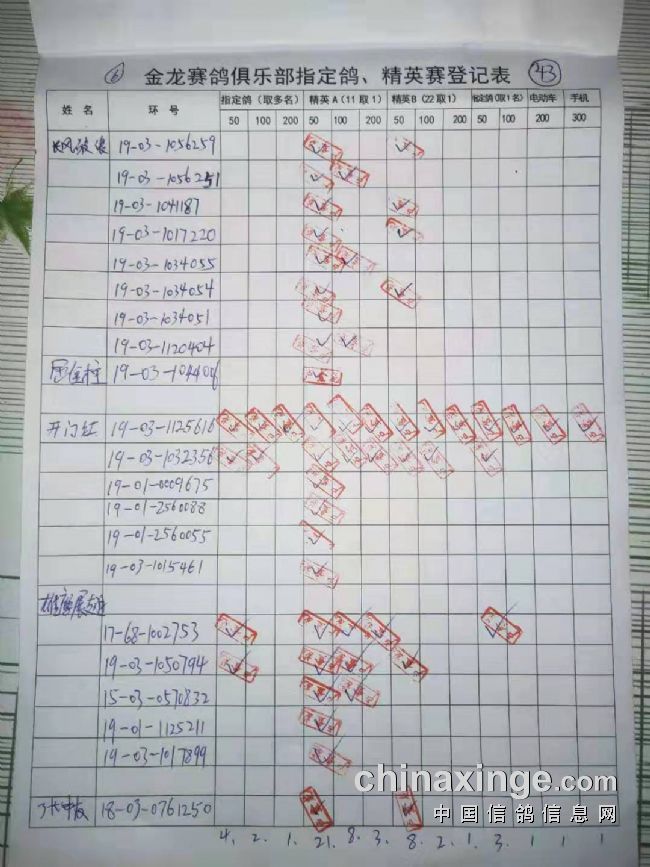 ⑥ 金龙赛鸽俱乐部指定鸽、精英赛登记表 43
姓名 环号 指定鸽（取多名） 精英A（11取1） 精英B（22取1） 指定鸽（取1名） 电动车 手机
50 100 200 50 100 200 50 100 200 50 100 200 300
19-03-1056259
19-03-1056251
19-03-1041187
19-03-1017220
19-03-1034055
19-03-1034054
19-03-1034051
19-03-1120404
19-03-104400
开门红 19-03-1125616
19-03-1032356
19-01-0009675
19-01-2560088
19-01-2560055
19-03-1015461
17-68-1002753
19-03-1050794
15-03-0570832
19-01-1125211
19-03-1017899
18-03-0761250
4. 2. 1. 21. 8. 3. 8. 2. 1. 3. 1 1 1
chinaxinge.com
中国信鸽信息网